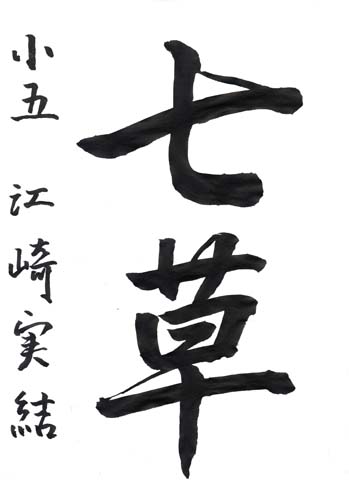 七草
小五 江崎実結